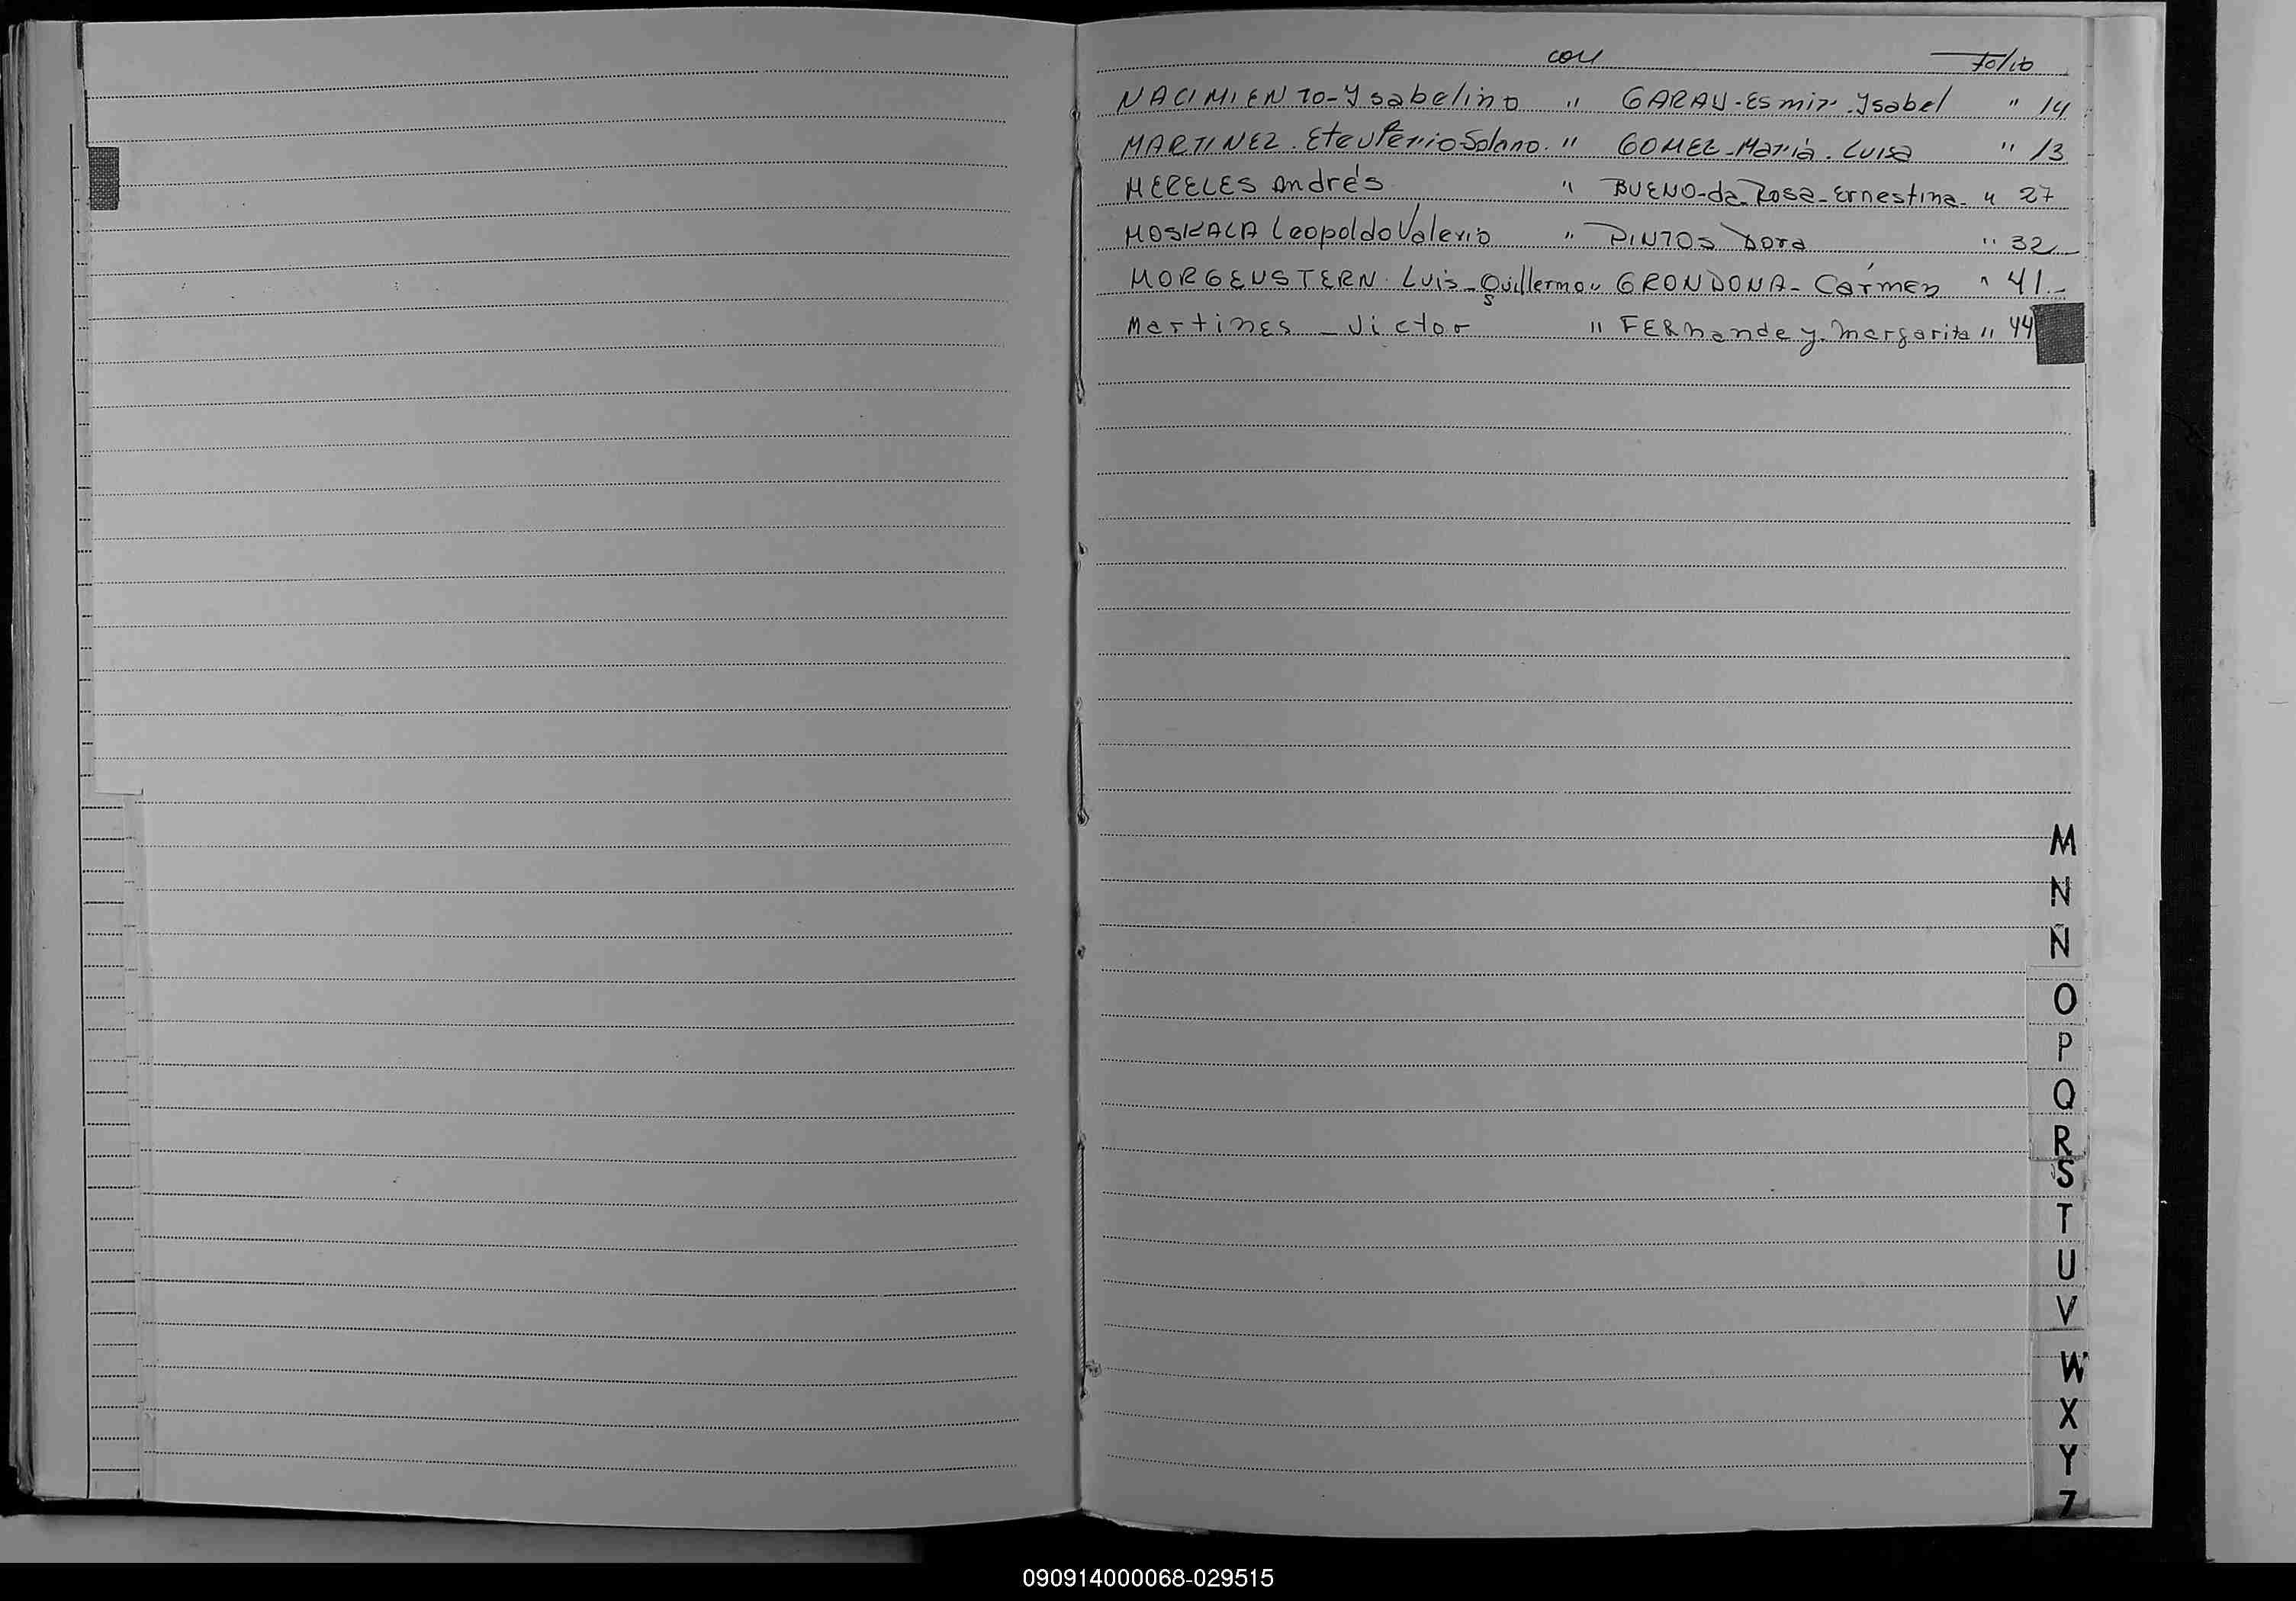 con Folio
NACIMIENTO-Ysabelino " GARAY-Esmir-Ysabel " 14
MARTINEZ. Eleuterio Solano. " GOMEZ-María. Luisa " 13
MERELES Andrés " BUENO-da Rosa-Ernestina- " 27
MOSKALA Leopoldo Valerio " PINTOS Dora " 32
MORGENSTERN. Luis-Guillermo " GRONDONA-Cármen " 41.-
Martines - Victor " FERnandez. Margarita " 44
M
N
Ñ
O
P
Q
R
S
T
U
V
W
X
Y
Z
090914000068-029515